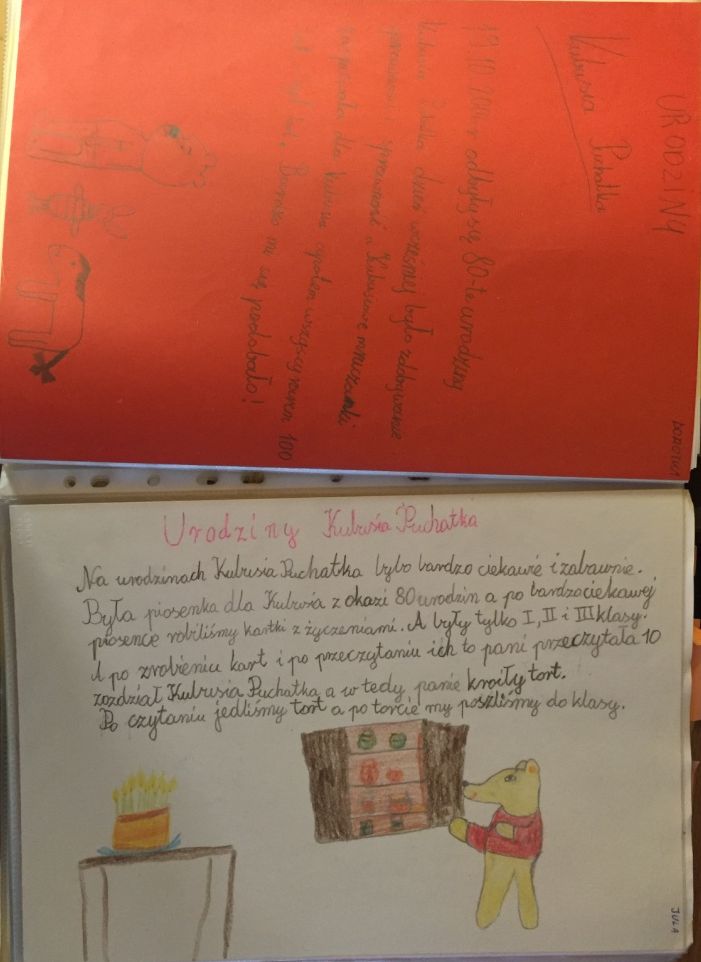 URODZINY
Kubusia Puchatka
19.10.2006r odbyły się 80-te urodziny
Kubusia dzień wcześniej było zdobywanie
sprawności „Kubusiowe mruczanki
zaśpiewała dla Kubusia wszyscy razem 100
lat. Bardzo mi się podobało!
DOROTKA
Urodziny Kubusia Puchatka
Na urodzinach Kubusia Puchatka było bardzo ciekawie i zabawnie.
Była piosenka dla Kubusia z okazi 80 urodzin a po bardzo ciekawej
piosence robiliśmy kartki z życzeniami. A były tylko I, II i III klasy.
A po zrobieniu kart i po przeczytaniu ich to pani przeczytała 10
rozdział Kubusia Puchatka, a w tedy panie kroiły tort.
Po czytaniu jedliśmy tort a po torcie my poszliśmy do klasy.
JULA